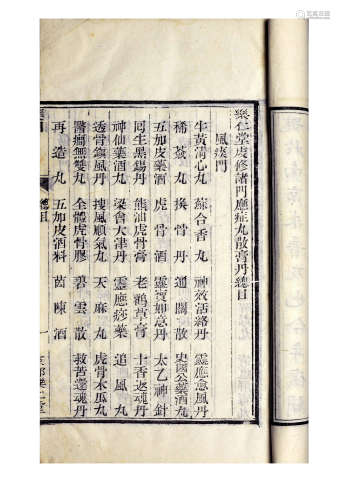 樂仁堂虔修諸門應症丸散膏丹總目
風痰門
牛黃清心丸 蘇合香丸 神效活絡丹 靈應愈風丹
豨薟丸 換骨丹 通關散 史國公藥酒丸
五加皮藥酒 虎骨酒 靈寶如意丹 太乙神針
回生黑錫丹 熊油虎骨膏 老鸛草膏 十香返魂丹
神仙藥酒丸 梁會大津丹 靈應痧藥 追風丸
透骨鎮風丹 搜風順氣丸 天麻丸 虎骨木瓜丸
醫癇無雙丸 全體虎骨膠 碧雲散 救苦還魂丹
再造丸 五加皮酒料 茵陳酒
總目 一